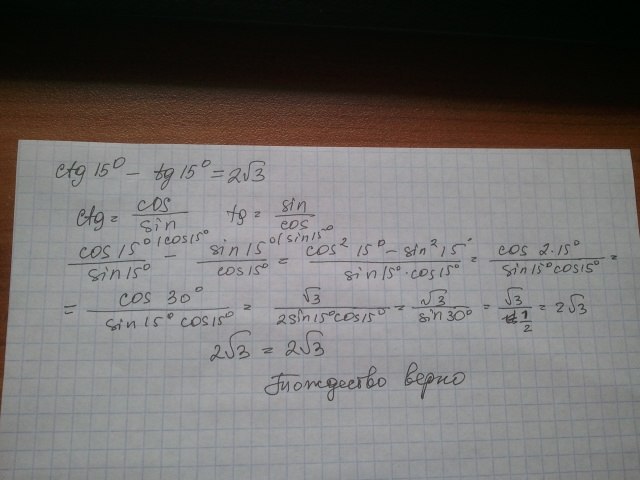 ctg 15° - tg 15° = 2√3
ctg = cos/sin tg = sin/cos
cos 15° |cos15°/sin 15° - sin 15° |sin15°/cos 15° = cos² 15° - sin² 15°/sin 15° · cos 15° = cos 2·15°/sin 15° cos 15° =
= cos 30°/sin 15° cos 15° = √3/2sin 15° cos 15° = √3/sin 30° = √3/1/2 = 2√3
2√3 = 2√3
Тождество верно